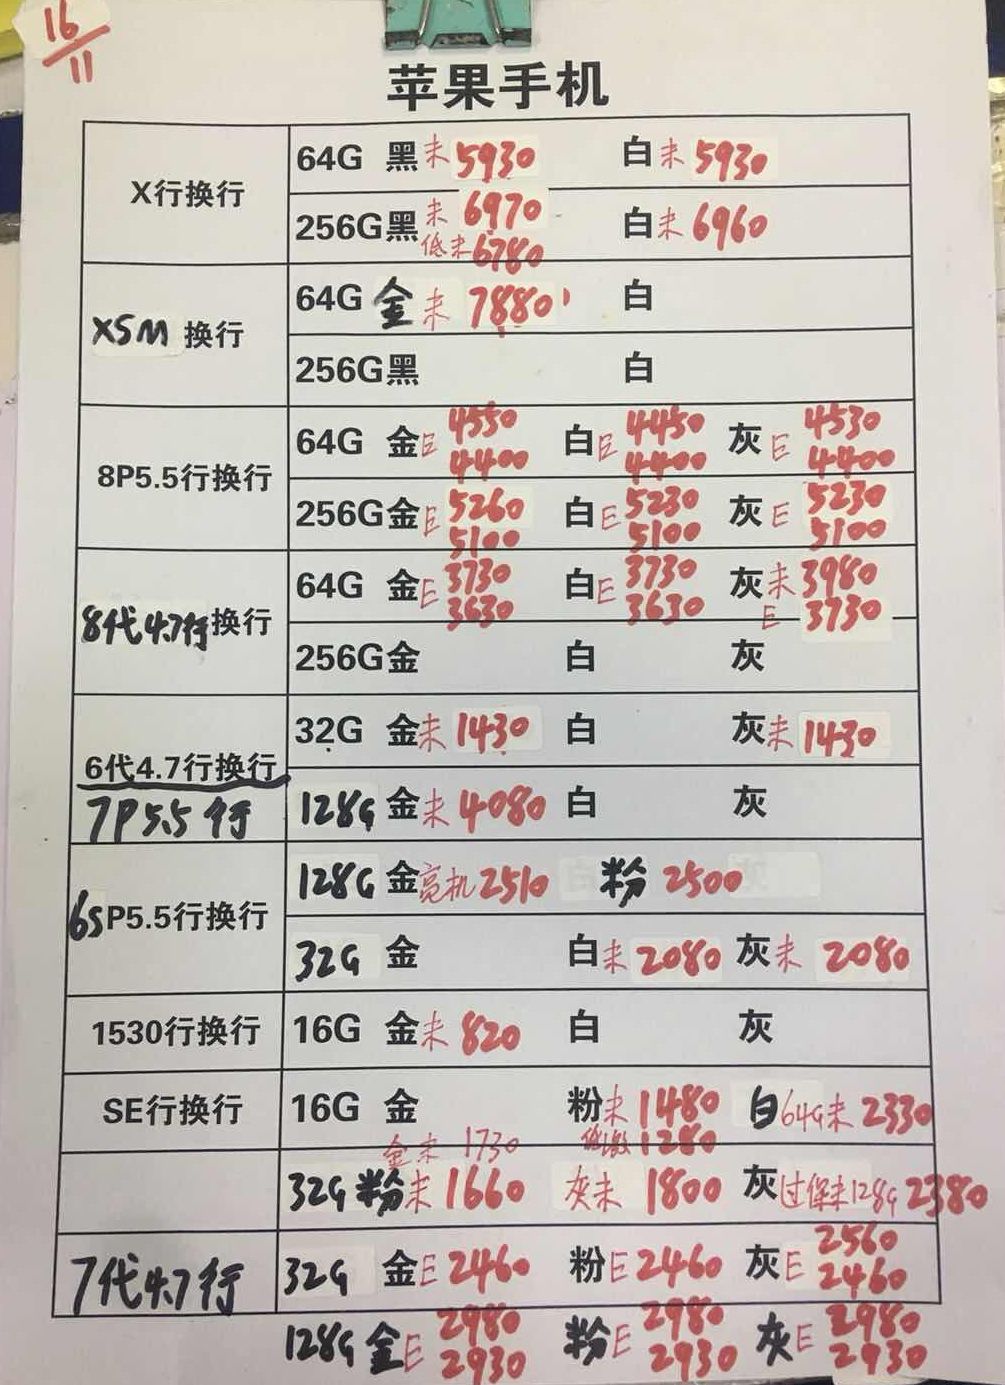 16/11
苹果手机
X行换行
64G 黑未5930 白未5930
256G黑未6970 白未6960
低未6780
XSM换行
64G 金未7880 白
256G黑 白
8P5.5行换行
64G 金E4550 白E4450 灰E4530
4400 4400 4400
256G金E5260 白E5230 灰E5230
5100 5100 5100
8代4.7行换行
64G 金E3730 白E3730 灰未3980
3630 3630 E3730
256G金 白 灰
6代4.7行换行
32G 金未1430 白 灰未1430
7P5.5行
128G 金未4080 白 灰
6SP5.5行换行
128G 金亮机2510 粉2500
32G 金 白未2080 灰未2080
1530行换行
16G 金未820 白 灰
SE行换行
16G 金 粉未1480 白64G未2330
金未1730 低激1280
32G粉未1660 灰未1800 灰过保未128G2380
7代4.7行
32G 金E2460 粉E2460 灰E2560
2460
128G金E2980 粉E2980 灰E2980
2930 2930 2930